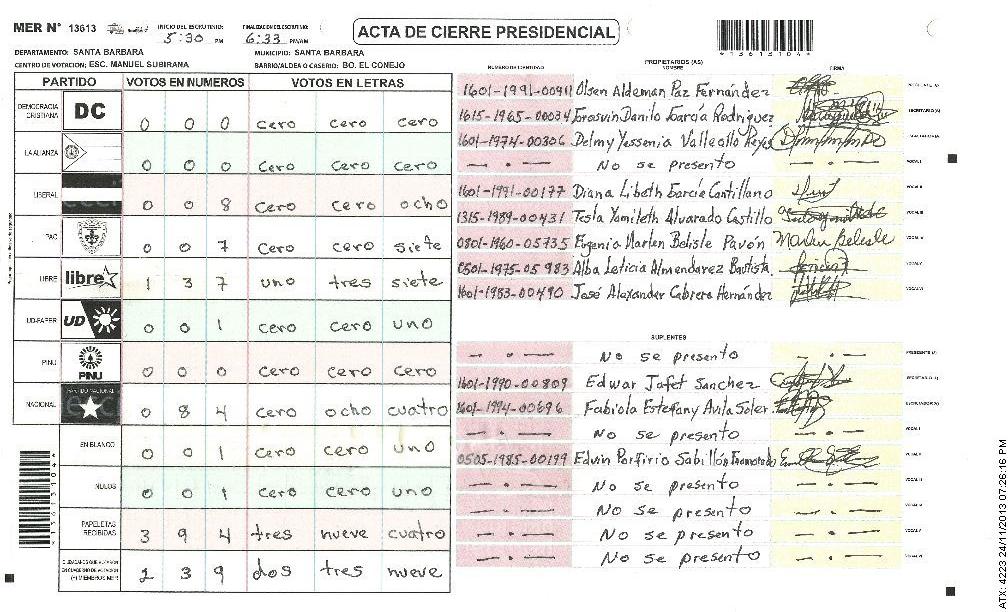 MER N° 13613 INICIO DEL ESCRUTINIO: 5:30 PM FINALIZACION ESCRUTINIO: 6:33 PM/AM ACTA DE CIERRE PRESIDENCIAL *13613104*
DEPARTAMENTO: SANTA BARBARA MUNICIPIO: SANTA BARBARA
CENTRO DE VOTACION: ESC. MANUEL SUBIRANA BARRIO/ALDEA O CASERIO: BO. EL CONEJO
PARTIDO VOTOS EN NUMEROS VOTOS EN LETRAS
DEMOCRACIA CRISTIANA DC 0 0 0 cero cero cero
LA ALIANZA 0 0 0 cero cero cero
LIBERAL 0 0 8 cero cero ocho
PAC 0 0 7 cero cero siete
LIBRE libre 1 3 7 uno tres siete
UD-FAPER UD 0 0 1 cero cero uno
PINU PINU 0 0 0 cero cero cero
NACIONAL PARTIDO NACIONAL 0 8 4 cero ocho cuatro
EN BLANCO 0 0 1 cero cero uno
NULOS 0 0 1 cero cero uno
PAPELETAS RECIBIDAS 3 9 4 tres nueve cuatro
CIUDADANOS QUE VOTARON EN CUADERNO DE VOTACION (+) MIEMBROS MER 2 3 9 dos tres nueve
*13613104*
PROPIETARIOS (AS)
NUMERO DE IDENTIDAD NOMBRE FIRMA
1601-1991-00911 Olsen Aldeman Paz Fernández PRESIDENTE (A)
1615-1965-00034 Danilo García Rodriguez SECRETARIO (A)
1601-1974-00306 Delmy Yessenia Vallecillo Reyes ESCRUTADOR (A)
— . — No se presento — . — VOCAL I
1601-1991-00177 Diana Libeth García Cantillano VOCAL II
1315-1989-00431 Tesla Yamileth Alvarado Castillo VOCAL III
0801-1960-05735 Eugenia Marlen Belisle Pavón Marlen Belisle VOCAL IV
0501-1975-05983 Alba Leticia Almendarez Bautista VOCAL V
1601-1983-00490 José Alexander Cabrera Hernández VOCAL VI
SUPLENTES
— . — No se presento — . — PRESIDENTE (A)
1601-1990-00809 Edwar Jafet Sanchez SECRETARIO (A)
1601-1994-00696 Fabiola Estefany Avila Soler ESCRUTADOR (A)
— . — No se presento — . — VOCAL I
0505-1985-00199 Edvin Porfirio Sabillón VOCAL II
— . — No se presento — . — VOCAL III
— . — No se presento — . — VOCAL IV
— . — No se presento — . — VOCAL V
— . — No se presento — . — VOCAL VI
ATX: 4223 24/11/2013 07:26:16 PM